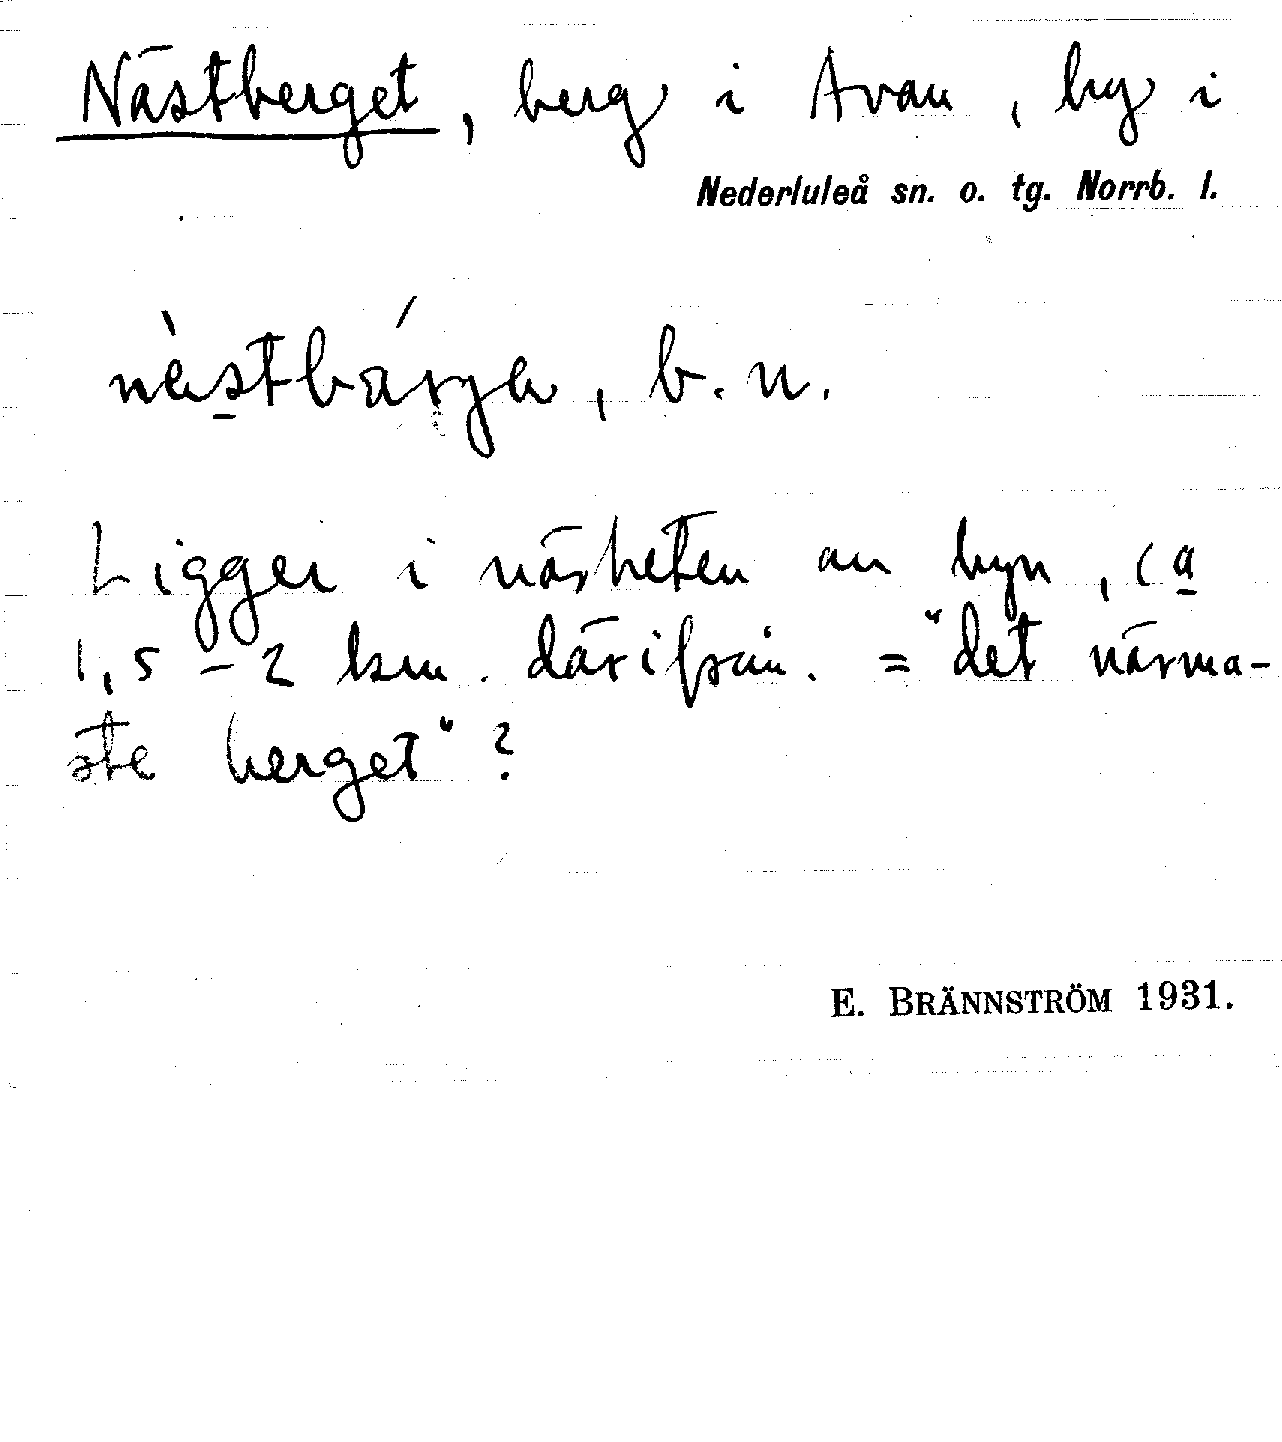 Nästberget, berg i Avan, by i
Nederluleå sn. o. tg. Norrb. l.
nèstbárga, b. n.
Ligger i närheten av byn, ca
1,5 – 2 km. därifrån. = "det närma-
ste berget"?
E. BRÄNNSTRÖM 1931.